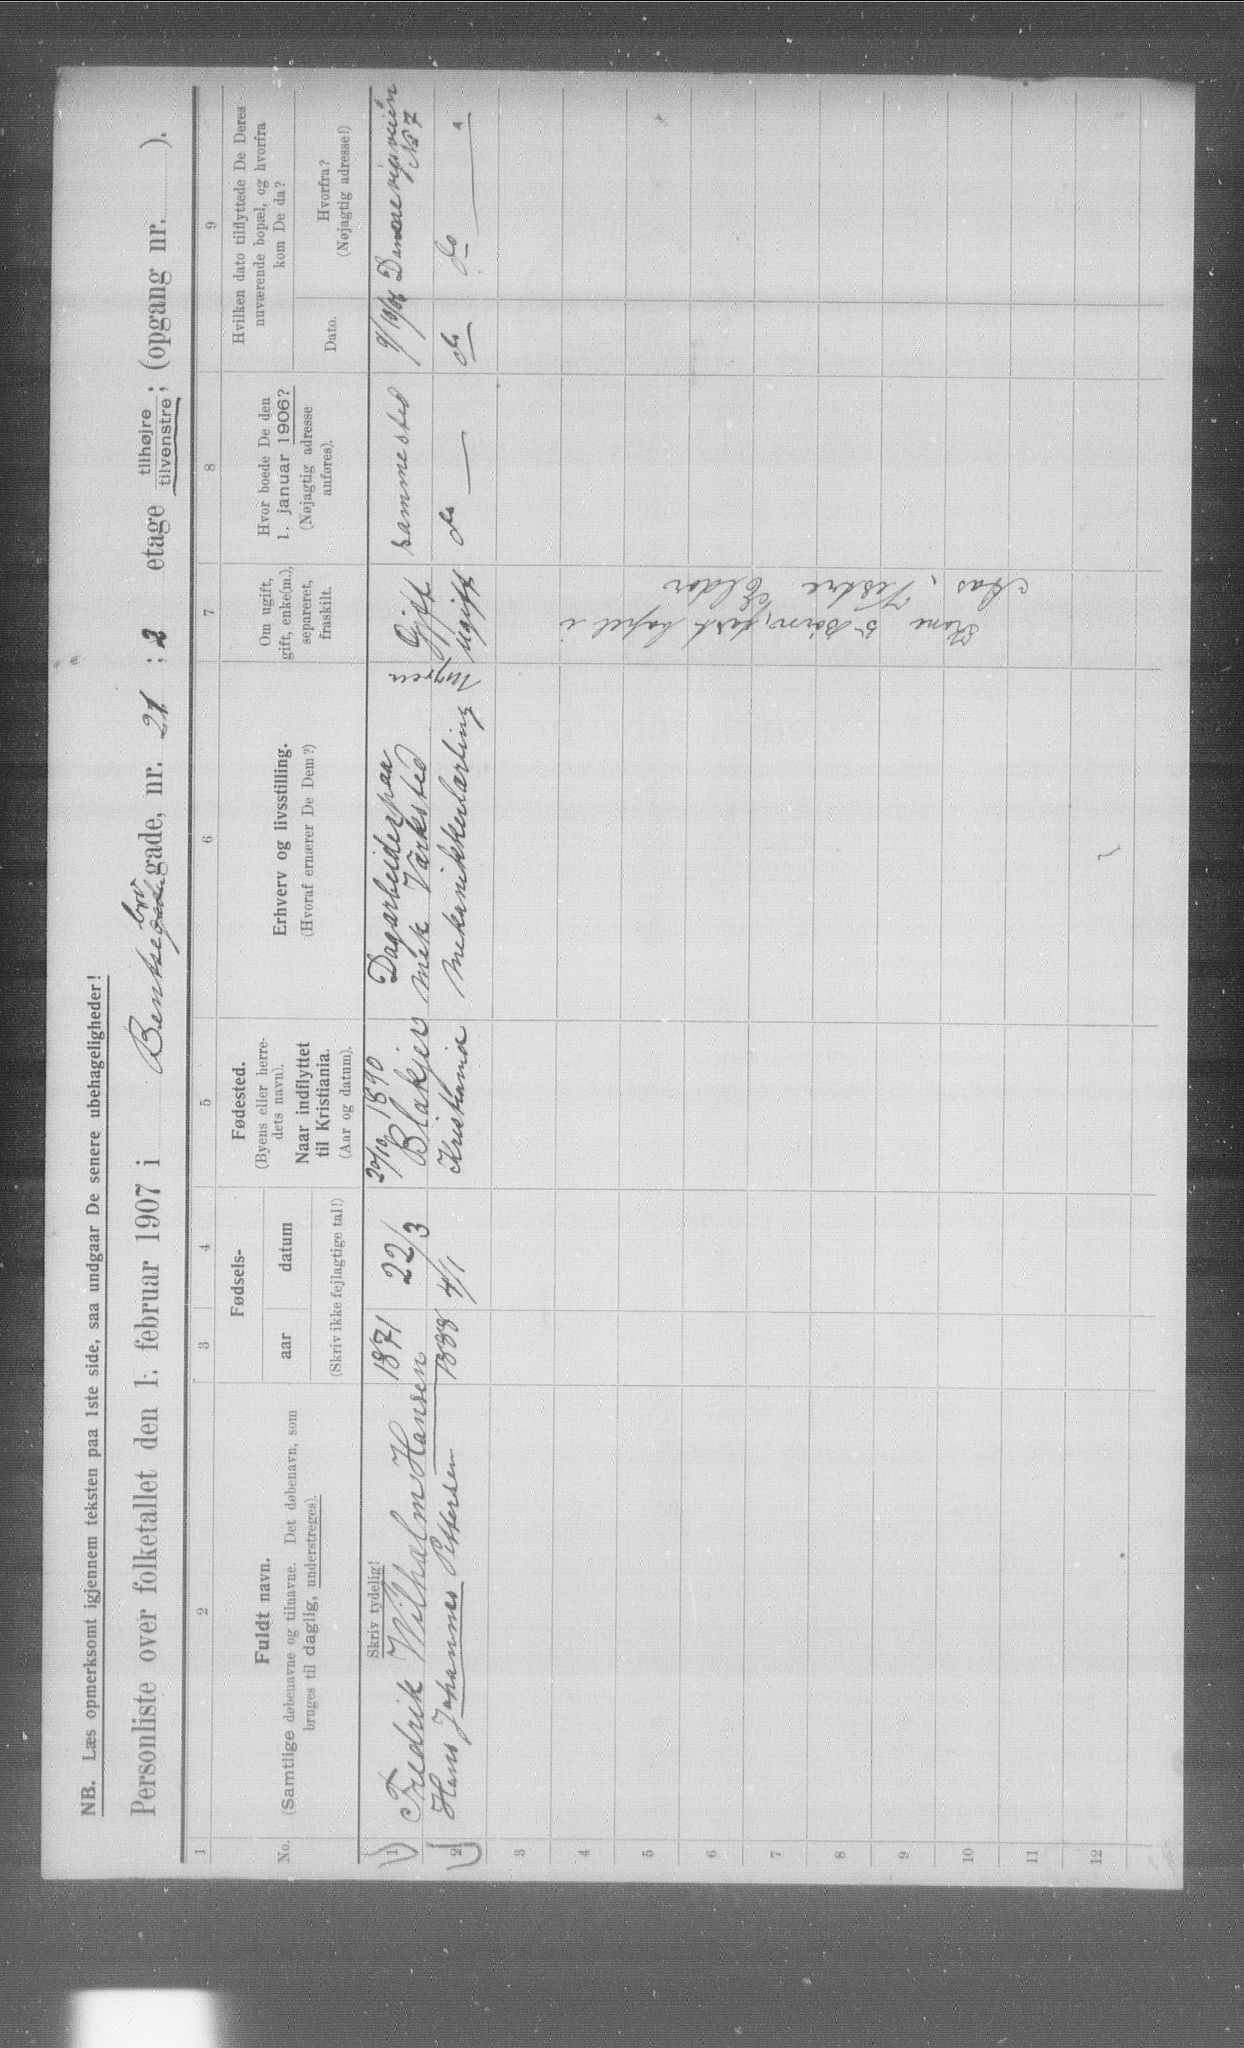 NB. Læs opmerksomt igjennem teksten paa 1ste side, saa undgaar De senere ubehageligheder!
Personliste over folketallet den 1. februar 1907 i Bentsebro gade, nr. 21 ; 2 etage tilhøjre tilvenstre ; (opgang nr. ).
1 2 3 4 5 6 7 8 9
No.
Fuldt navn.
(Samtlige døbenavne og tilnavne. Det døbenavn, som
bruges til daglig, understreges).
Fødsels-
aar datum
(Skriv ikke fejlagtige tal!)
Fødested.
(Byens eller herre-
dets navn).
Naar indflyttet
til Kristiania.
(Aar og datum).
Erhverv og livsstilling.
(Hvoraf ernærer De Dem?)
Om ugift,
gift, enke(m.),
separeret,
fraskilt.
Hvor boede De den
1. januar 1906?
(Nøjagtig adresse
anføres).
Hvilken dato tilflyttede De Deres
nuværende bopæl, og hvorfra
kom De da?
Dato.
Hvorfra?
(Nøjagtig adresse!)
Skriv tydelig!
1 Fredrik Wilhelm Hansen 1871 22/3 20/10 1890 Blakjer Dagarbeider paa mek Værksted Myren Gift sammested 9/10/06 Dannevigsveien No 7
2 Hans Johannes Pettersen 1888 4/1 Kristiania mekanikkerlærling ugift do do do "
3
4
5
6
7
8
9
10
11
12
Kone 5 børn, fast bopel i
Aas, Vestre